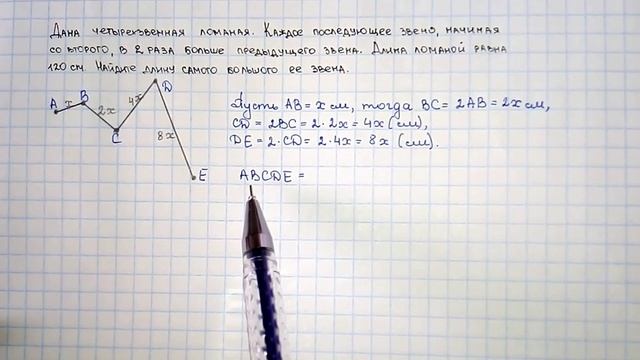 Дана четырехзвенная ломаная. Каждое последующее звено, начиная
со второго, в 2 раза больше предыдущего звена. Длина ломаной равна
120 см. Найдите длину самого большого ее звена.
A x B 2x C 4x D 8x E
Пусть AB = x см, тогда BC = 2AB = 2x см,
CD = 2BC = 2·2x = 4x (см),
DE = 2·CD = 2·4x = 8x (см).
ABCDE =